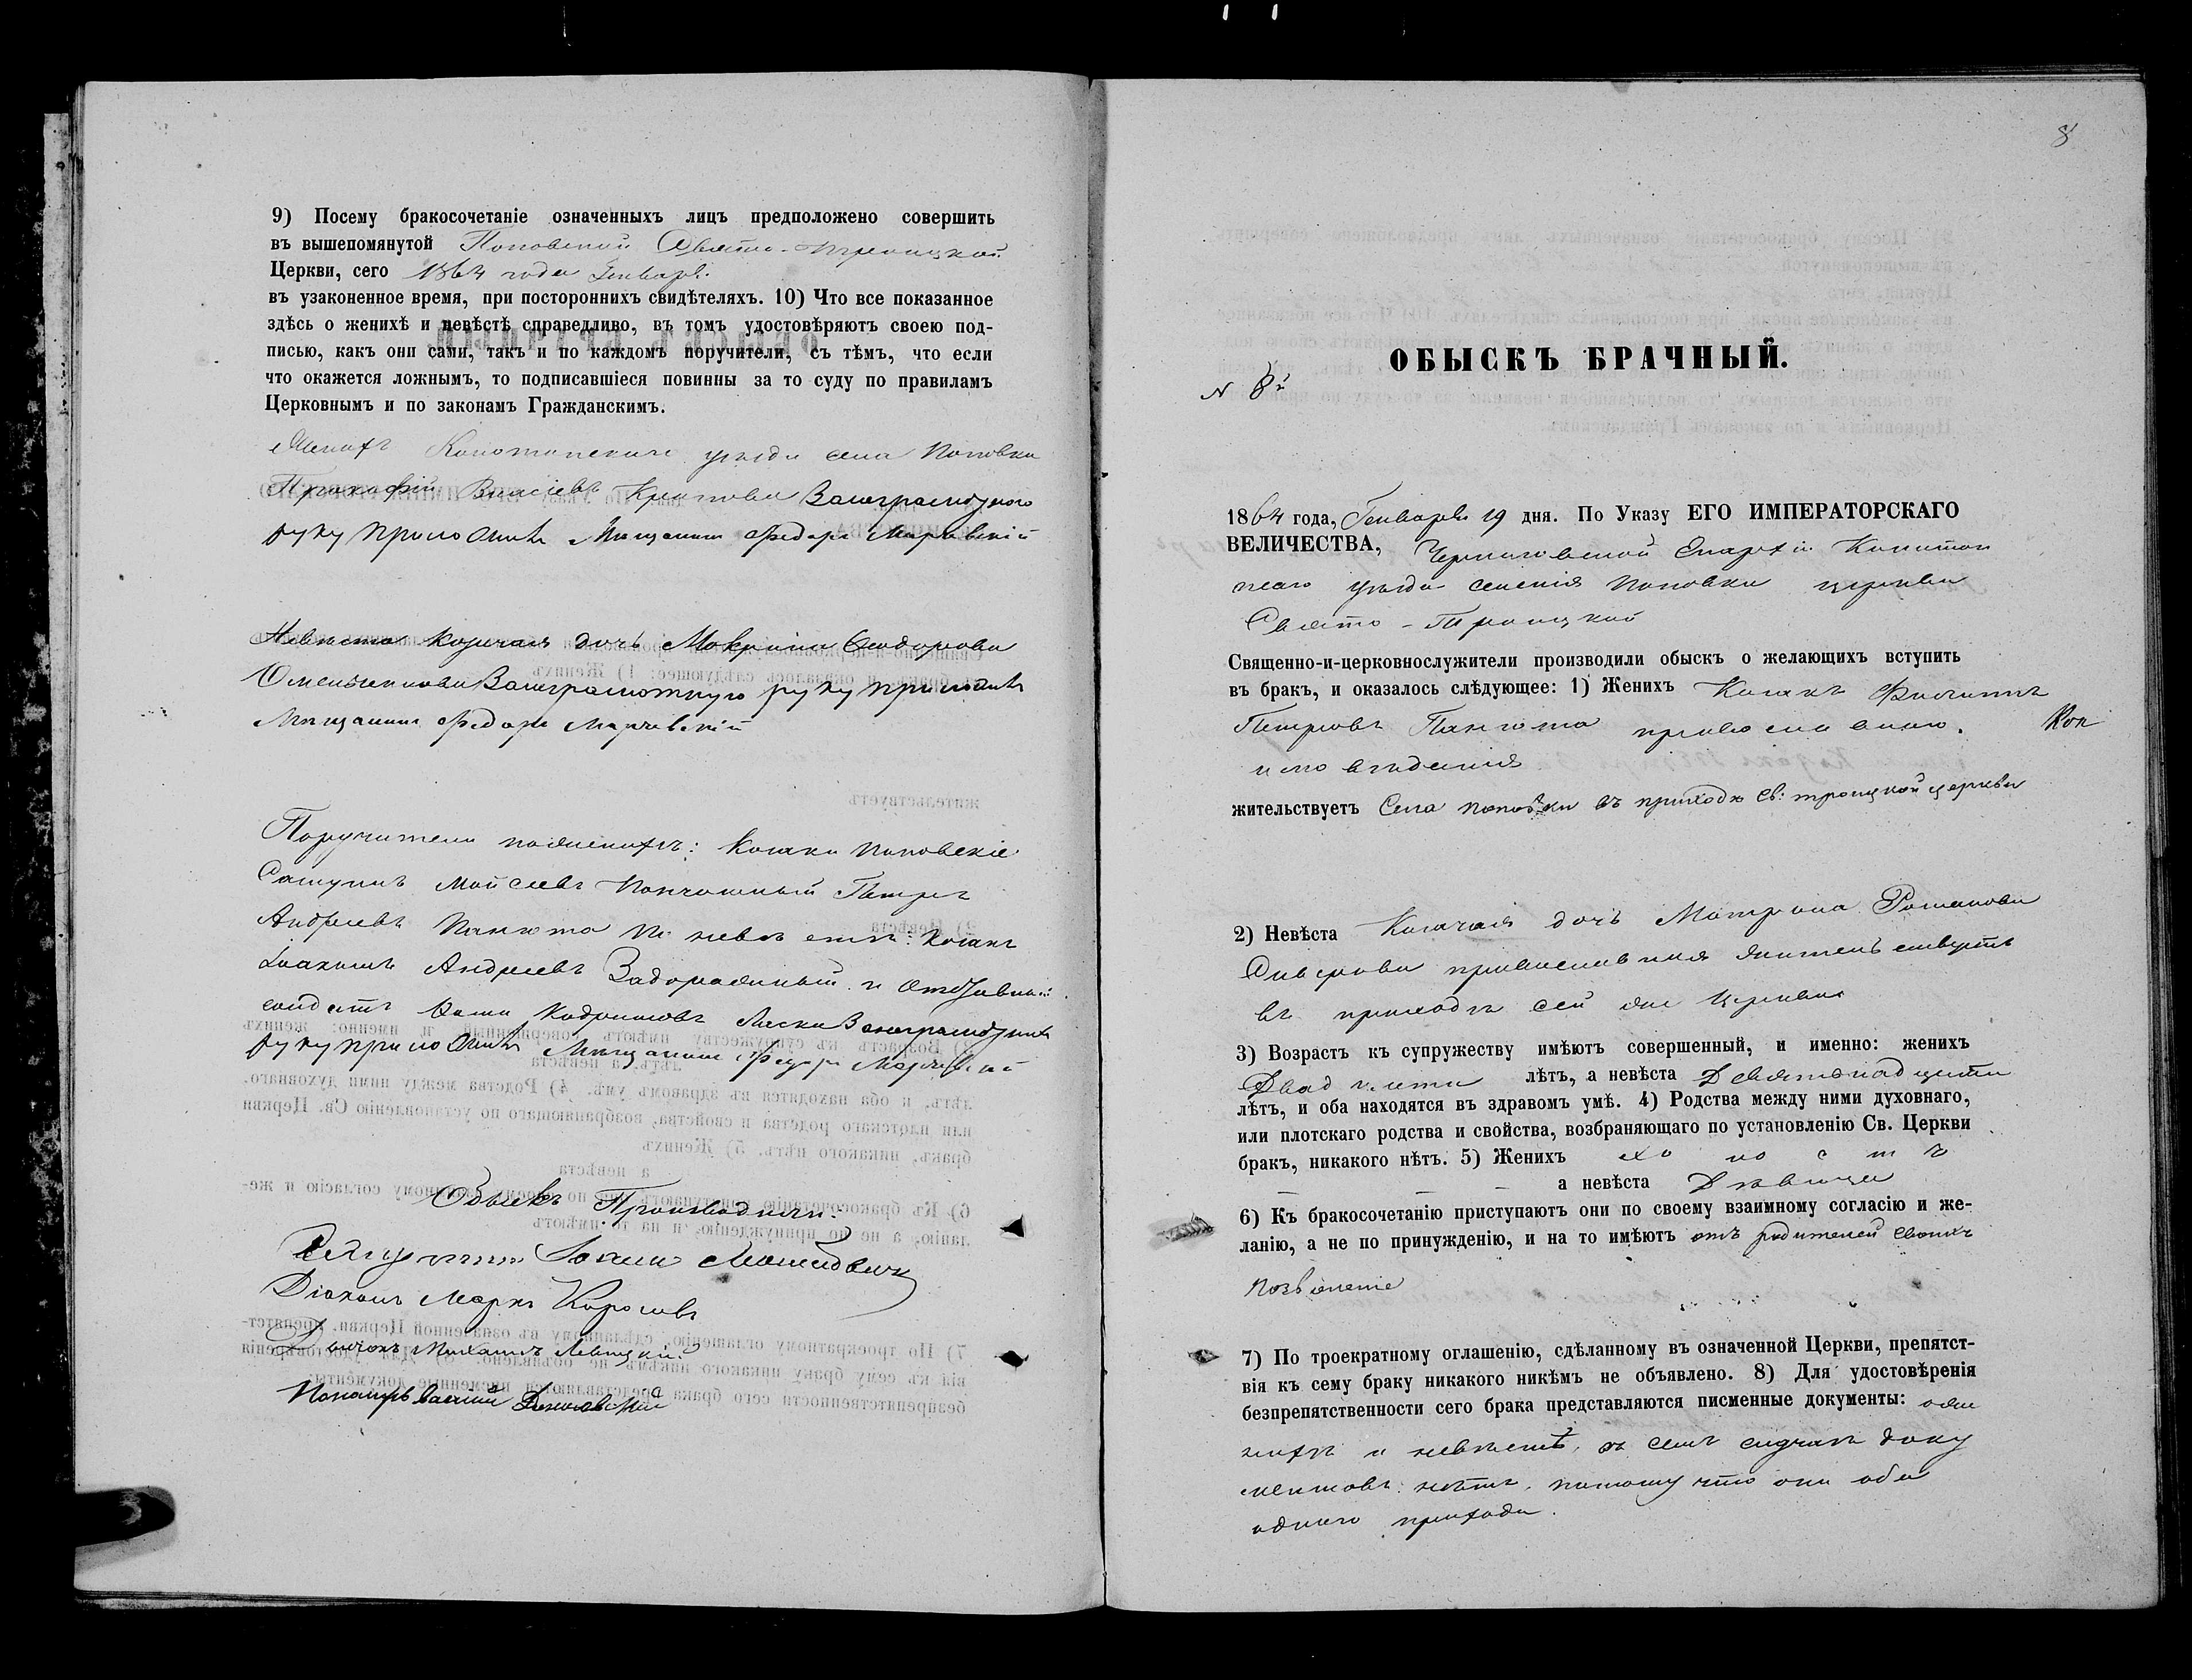 9) Посему бракосочетаніе означенныхъ лицъ предположено совершить
въ вышепомянутой Поповской Свято-Троицкой
Церкви, сего 1864 года Генваря
въ узаконенное время, при постороннихъ свидѣтеляхъ. 10) Что все показанное
здѣсь о женихѣ и невѣстѣ справедливо, въ томъ удостовѣряютъ своею под-
писью, какъ они сами, такъ и по каждомъ поручители, съ тѣмъ, что если
что окажется ложнымъ, то подписавшіеся повинны за то суду по правиламъ
Церковнымъ и по законамъ Гражданскимъ.
Женихъ Конотопскаго уѣзда села Поповки
руку приложилъ Мѣщанинъ Федоръ
Невѣста козачая дочь Мокрина Феодорова
руку приложилъ
Мѣщанинъ Федоръ
Поручители по женихѣ: козаки Поповскіе
Моисеевъ Петръ
Андреевъ Панюта По невѣстѣ: козакъ
Іоакимъ Андреевъ Задорожный и отставный
солдатъ
руку приложилъ Мѣщанинъ Федоръ
Обыскъ Производили:
Діаконъ Маркъ
Дьячокъ Михаилъ Левицкій
Пономарь Василій
8
ОБЫСКЪ БРАЧНЫЙ.
N 8й
1864 года, Генваря 19 дня. По Указу ЕГО ИМПЕРАТОРСКАГО
ВЕЛИЧЕСТВА, Черниговской Епархіи Конотоп
скаго уѣзда селенія Поповки церкви
Свято-Троицкой
Священно-и-церковнослужители производили обыскъ о желающихъ вступить
въ бракъ, и оказалось слѣдующее: 1) Женихъ Козакъ Филиппъ
Петровъ Панюта православнаго Кон
исповѣданія
жительствуетъ Села Поповки въ приходѣ Св: Троицкой церкви
2) Невѣста Козачая дочь Матрона Романова
православная жительствуетъ
въ приходѣ сей же Церкви
3) Возрастъ къ супружеству имѣютъ совершенный, и именно: женихъ
Двадцати лѣтъ, а невѣста Девятнадцати
лѣтъ, и оба находятся въ здравомъ умѣ. 4) Родства между ними духовнаго,
или плотскаго родства и свойства, возбраняющаго по установленію Св. Церкви
бракъ, никакого нѣтъ. 5) Женихъ холостъ
а невѣста Дѣвица
6) Къ бракосочетанію приступаютъ они по своему взаимному согласію и же-
ланію, а не по принужденію, и на то имѣютъ отъ родителей своихъ
позволеніе
7) По троекратному оглашенію, сдѣланному въ означенной Церкви, препятст-
вія къ сему браку никакого никѣмъ не объявлено. 8) Для удостовѣренія
безпрепятственности сего брака представляются писменные документы: о же
нихѣ и невѣстѣ, въ семъ случаѣ доку
ментовъ нѣтъ, потому что они оба
одного прихода.